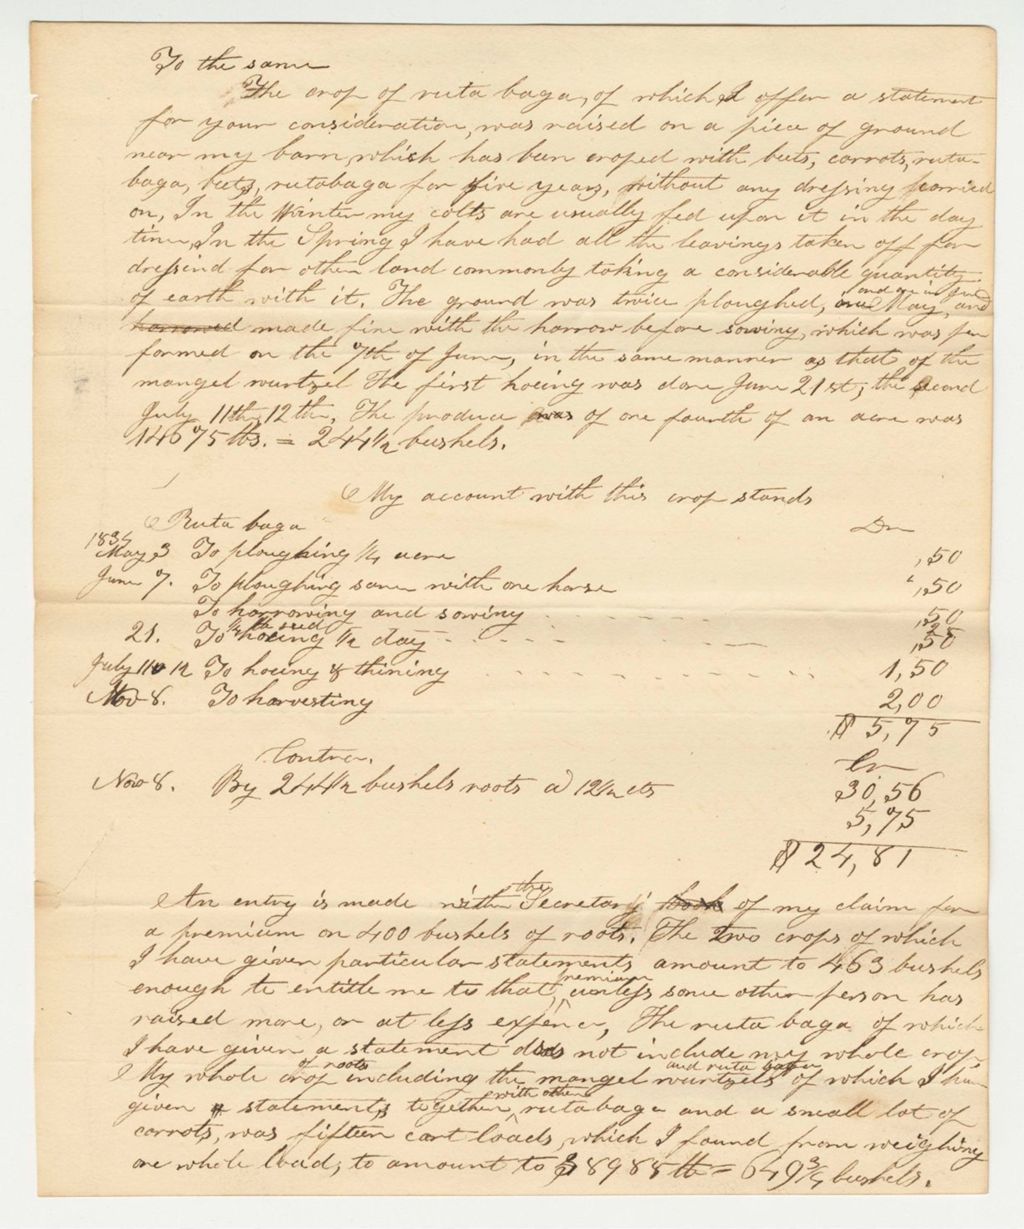 To the same
The crop of ruta baga, of which I offer a statement
for your consideration, was raised on a piece of ground
near my barn, which has been croped with beets, carrots, ruta-
baga, beets, rutabaga for five years, without any dressing carried
on, In the Winter my colts are usually fed upon it in the day
time, In the Spring I have had all the leavings taken off for
dressind for other land commonly taking a considerable quantity
of earth with it. The ground was twice ploughed, once May, and one in June and
harrowed made fine with the harrow before sowing, which was per
formed on the 7th of June, in the same manner as that of the
mangel wurtzel The first hoeing was done June 21st, the second
July 11th, 12th, The produce was of one fourth of an acre was
14675 lbs. = 244 1/2 bushels.
My account with this crop stands
Ruta baga Dr
1834
May 3 To ploughing 1/4 acre ,50
June 7. To ploughing same with one horse ,50
To harrowing and sowing ,50
To 1/4 lb seed 25
21. To hoeing 1/2 day ,50
July 11 & 12 To hoeing & thining 1,50
Nov 8. To harvesting 2,00
$ 5,75
Contra. Cr
Nov 8. By 244 1/2 bushels roots a 12 1/2 cts 30,56
5,75
$ 24,81
An entry is made with the Secretary book of my claim for
a premium on 400 bushels of roots. The two crops of which
I have given particular statements amount to 463 bushels
enough to entitle me to that premium, unless some other person has
raised more, or at less expence, The ruta baga of which
I have given a statement does not include my whole crop
My whole crop of roots including the mangel wurtzels and ruta baga of which I have
given a statements together with other rutabaga and a small lot of
carrots, was fifteen cart loads, which I found from weighing
one whole load, to amount to 38988 lb = 649 3/4 bushels.